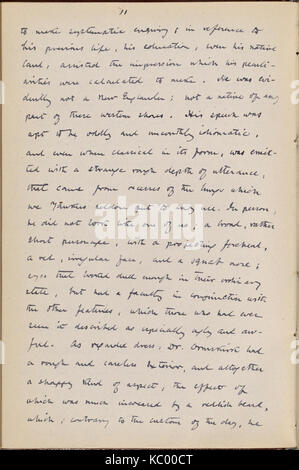 11
to make systematic enquiry; in reference to
his previous life, his education, even his native
land, assisted the impression which his peculi-
arities were calculated to make. He was evi-
dently not a New Englander; not a native of any
part of these western shores. His speech was
apt to be oddly and uncouthly idiomatic,
and even when classical in its form, was emit-
ted with a strange rough depth of utterance,
that came from recesses of the lungs which
we Yankees seldom put to any use. In person,
he did not look like one of us; a broad, rather
short personage, with a projecting forehead,
a red, irregular face, and a squat nose;
eyes that looked dull enough in their ordinary
state, but had a faculty in conjunction with
the other features, which those who had ever
seen it described as especially ugly and aw-
ful. As regarded dress, Dr. Ormskirk had
a rough and careless exterior, and altogether
a shaggy kind of aspect, the effect of
which was much increased by a reddish beard,
which, contrary to the custom of the day, he
alamy
KC00CT